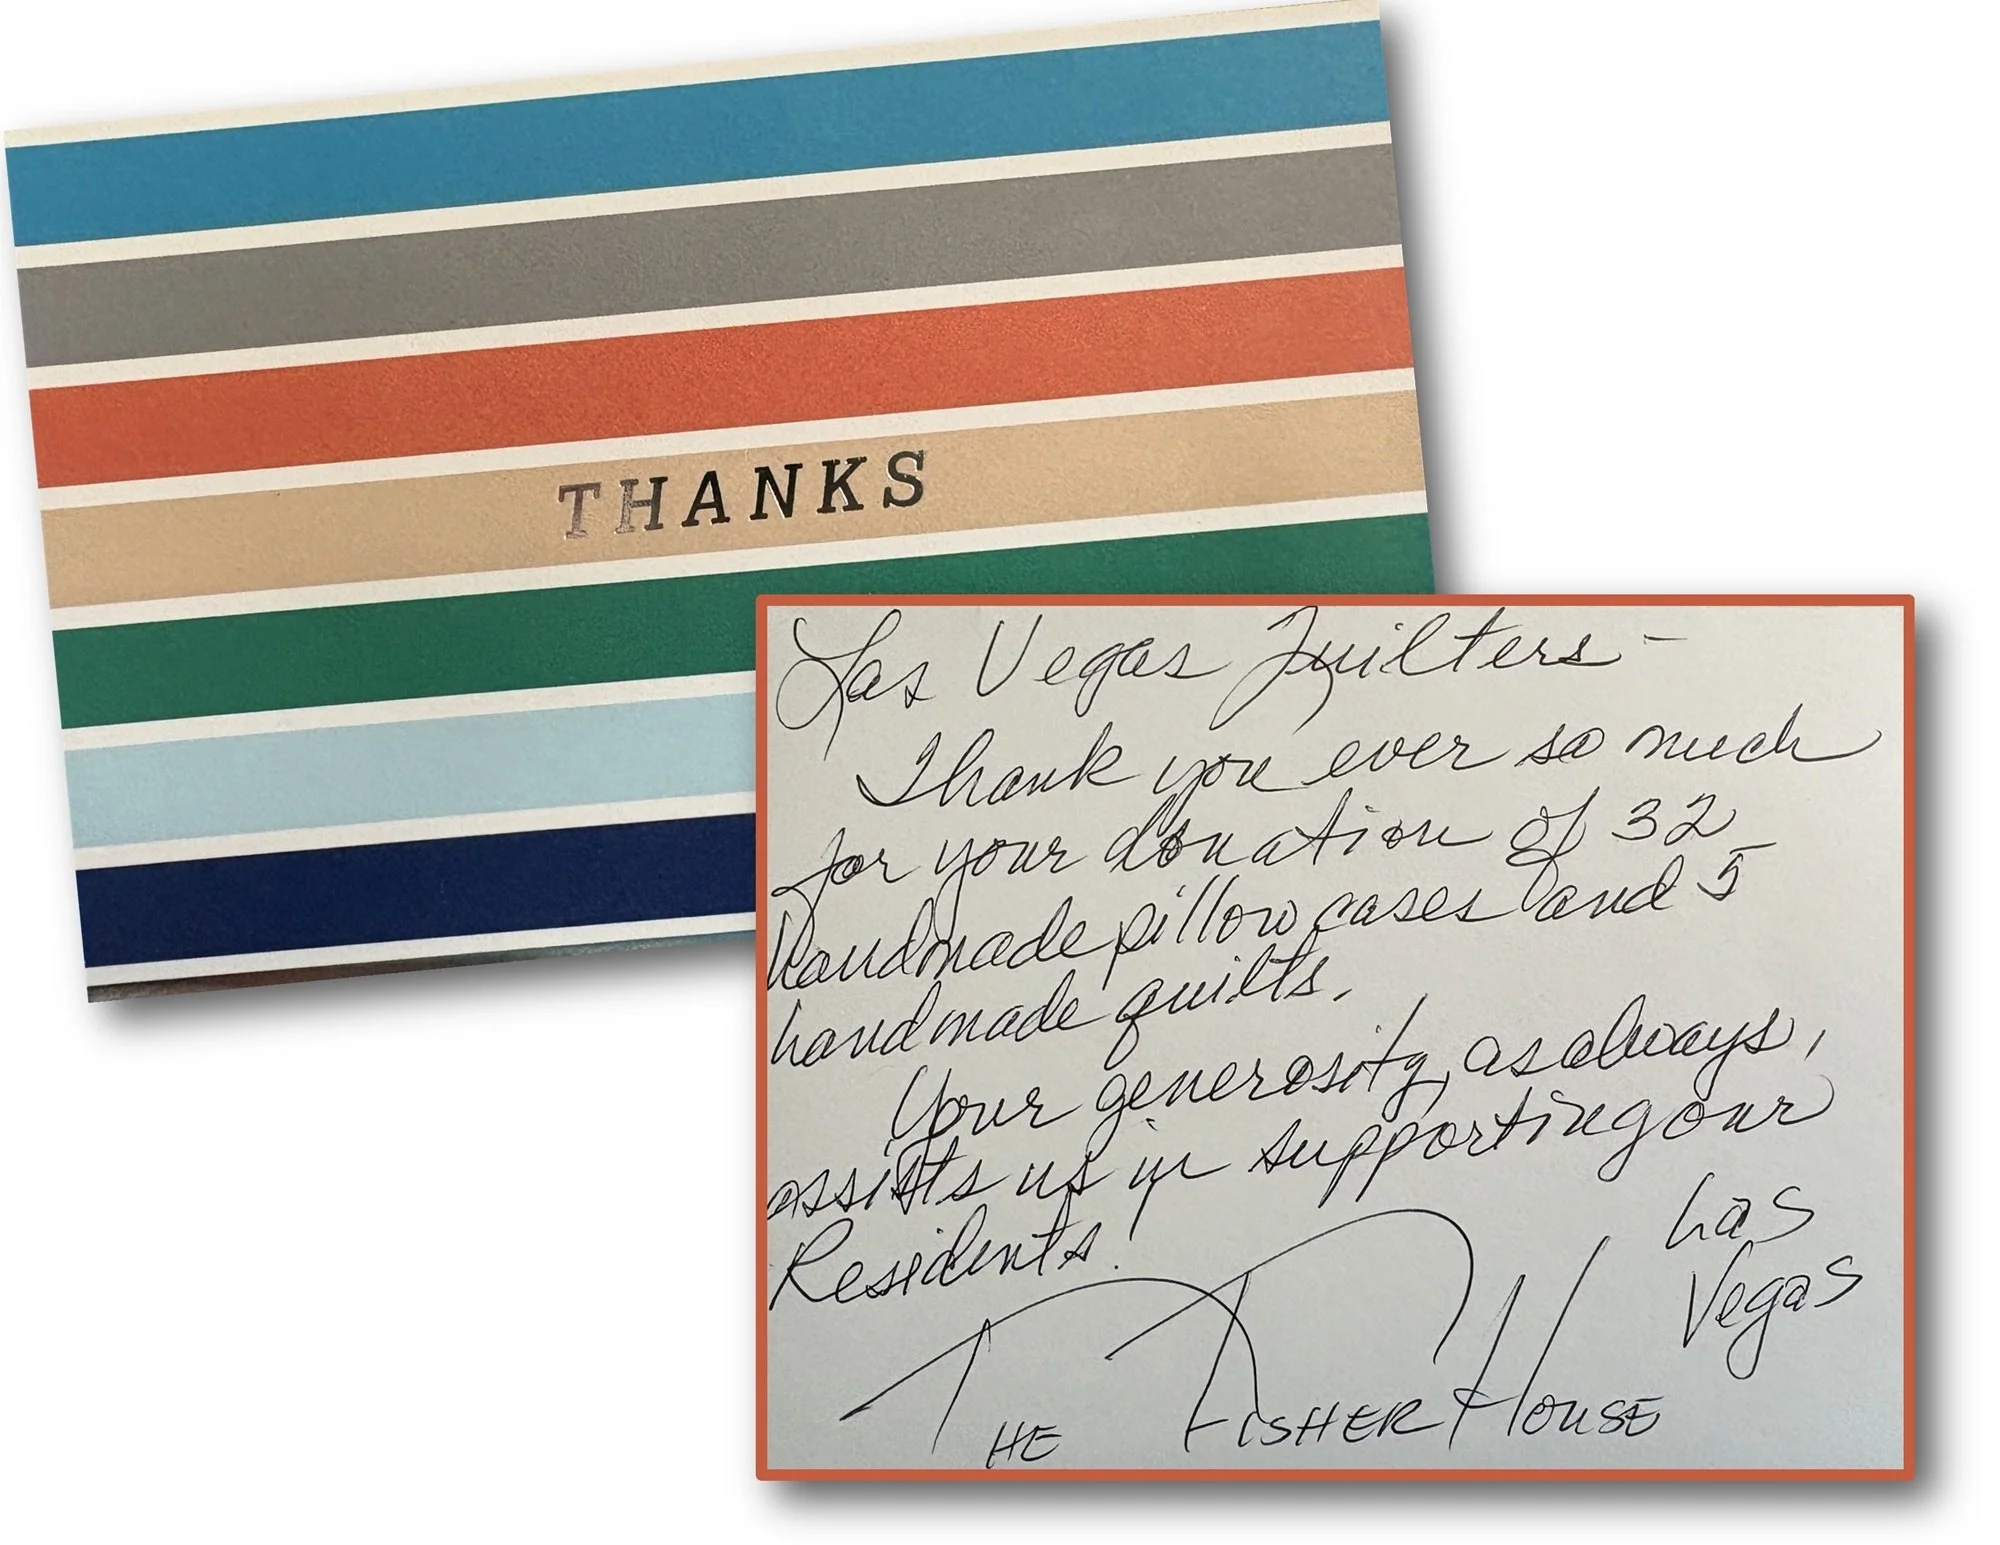 THANKS
Las Vegas Quilters -
Thank you ever so much
for your donation of 32
handmade pillow cases and 5
handmade quilts.
Your generosity, as always,
assists us in supporting our
Residents.
Las
Vegas
THE FISHER HOUSE